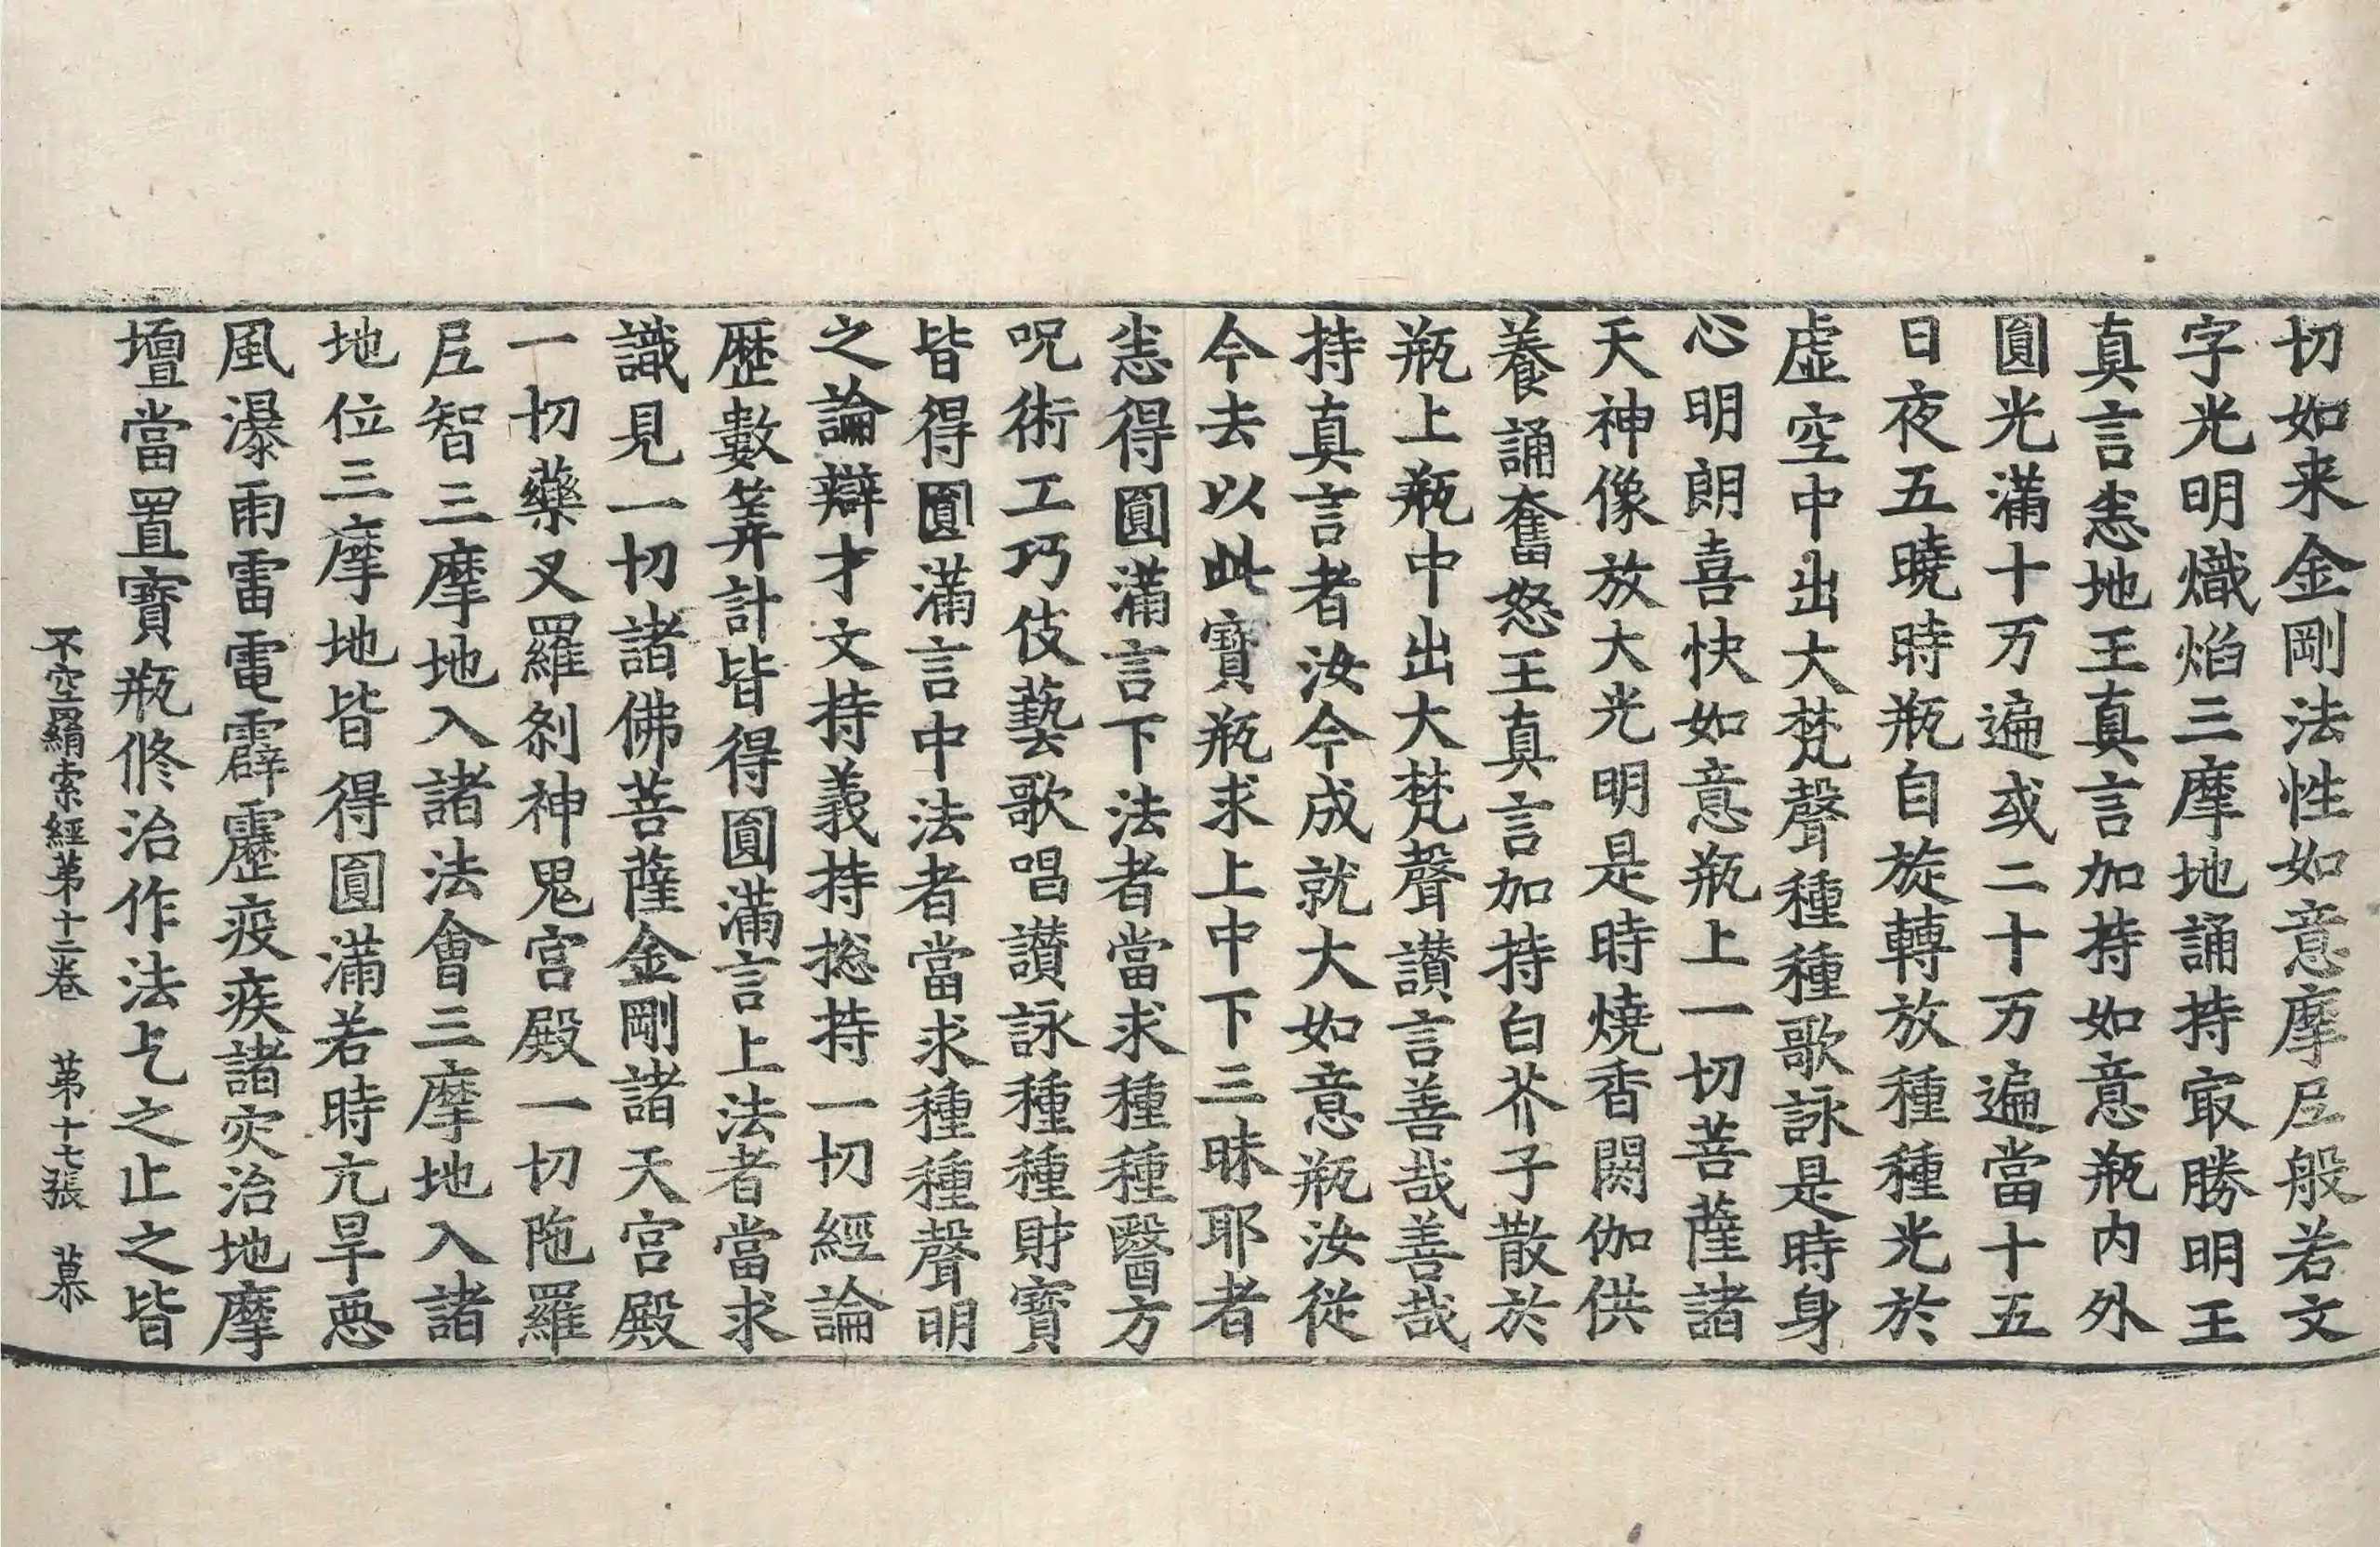 切如来金剛法性如意摩尼般若文
字光明熾焰三摩地誦持㝡勝明王
真言恚地王真言加持如意瓶内外
圓光滿十万遍或二十万遍當十五
日夜五曉時瓶自旋轉放種種光於
虛空中出大梵聲種種歌詠是時身
心明朗喜快如意瓶上一切菩薩諸
天神像放大光明是時燒香閼伽供
養誦奮怒王真言加持白芥子散於
瓶上瓶中出大梵聲讃言善哉善哉
持真言者汝今成就大如意瓶汝從
今去以此寶瓶求上中下三昧耶者
恚得圓滿言下法者當求種種醫方
呪術工巧伎藝歌唱讃詠種種財寶
皆得圓滿言中法者當求種種聲明
之論辯才文持義持捴持一切經論
歷數筭計皆得圓滿言上法者當求
識見一切諸佛菩薩金剛諸天宮殿
一切藥叉羅剎神鬼宮殿一切陁羅
尼智三摩地入諸法會三摩地入諸
地位三摩地皆得圓滿若時亢旱惡
風瀑雨雷電霹靂疫疾諸灾治地摩
壇當置寶瓶修治作法乞之止之皆
不空羂索經第十二卷 第十七張 慕